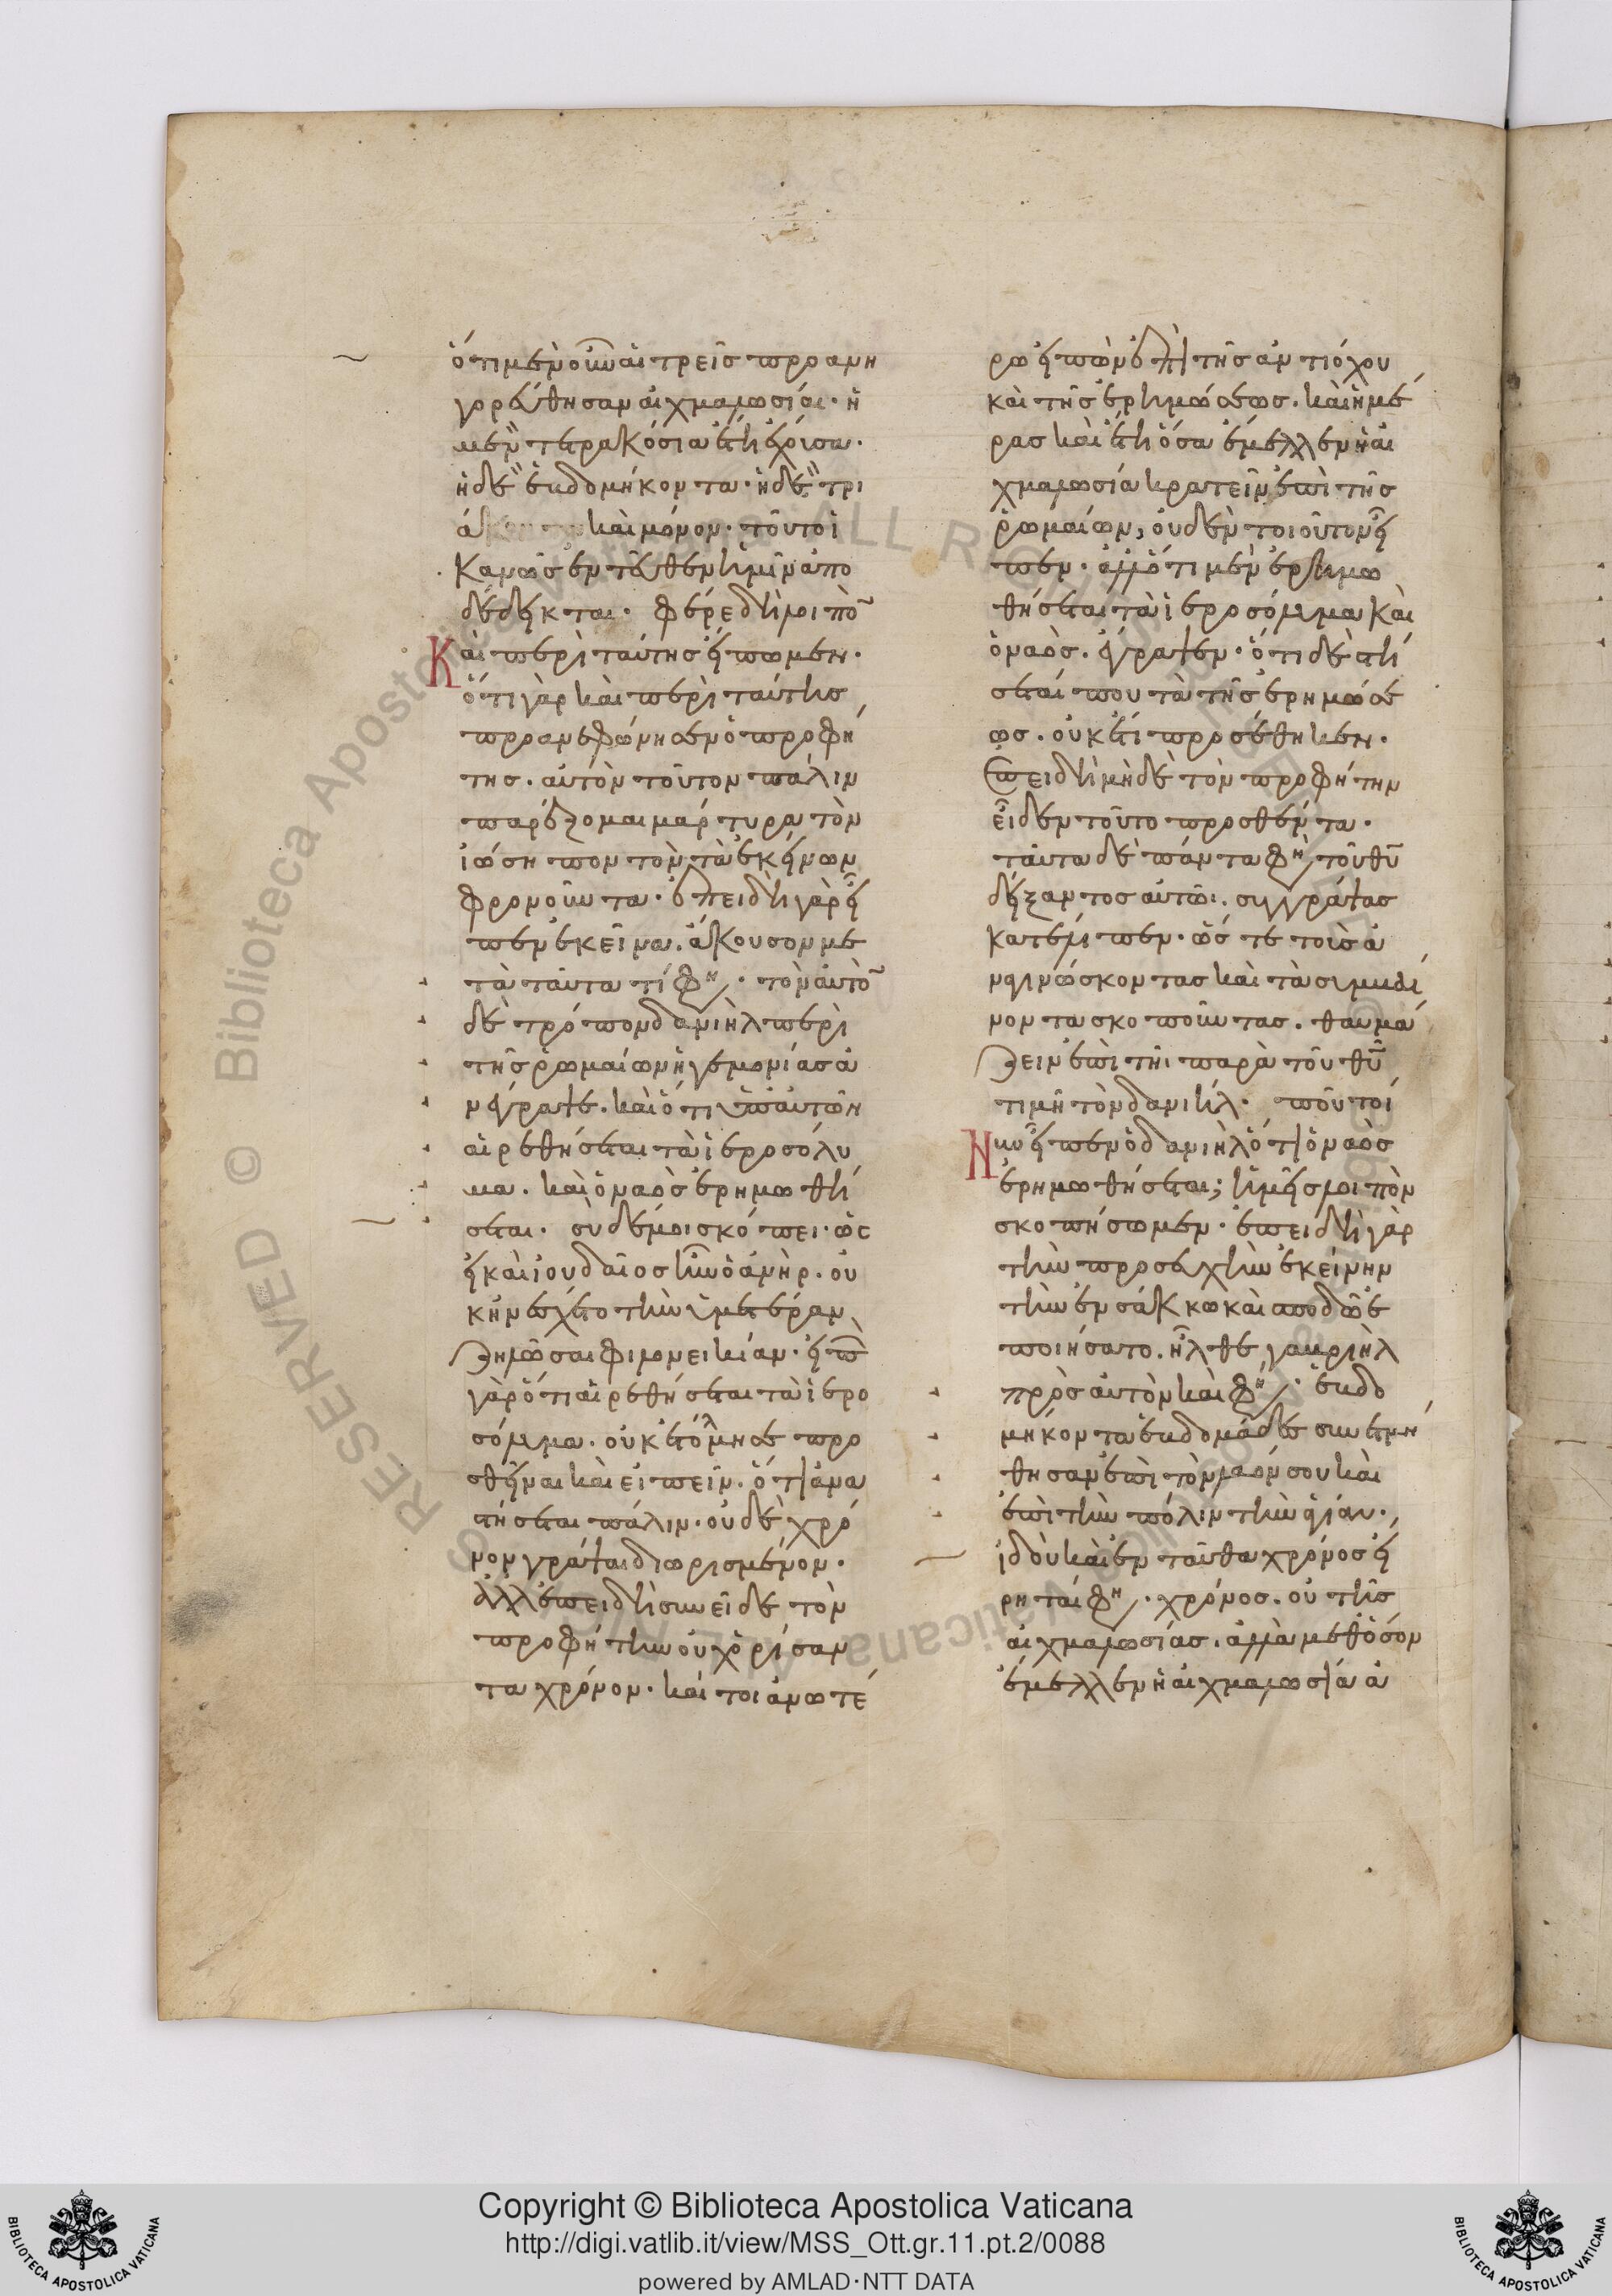 ὅτι μὲν οὖν αἱ τρεῖς προανη
γορεύθησαν αἰχμαλωσίαι· ἡ
μὲν τετρακόσια ἔτη ἔχουσα·
ἡ δὲ ἑβδομήκοντα· ἡ δὲ τρι
καὶ μόνον· τοῦτο ἱ
κανῶς ἐντεῦθεν ἡμῖν ἀπο
δέδεικται· φέρε δὴ λοιπὸ
Καὶ περὶ ταύτης εἴπωμεν·
ὅτι γὰρ καὶ περὶ ταύτης
προανεφώνησεν ὁ προφή
της· αὐτὸν τοῦτον πάλιν
παρέξομαι μάρτυρα τὸν
ἰώσηπον τὸν τὰ ἐκείνων
φρονοῦντα· ἐπειδὴ γὰρ εἶ
πεν ἐκεῖνα, ἄκουσον με
τὰ ταῦτα τί φη· τὸν αὐτὸ
δὲ τρόπον δανιὴλ περὶ
τῆς ῥωμαίων ἡγεμονίας ἀ
νέγραψε· καὶ ὅτι ὑπ' αὐτῶν
αἱρεθήσεται τὰ ἱεροσόλυ
μα· καὶ ὁ ναὸς ἐρημωθή
σεται· σὺ δέ μοι σκόπει· ὡς
εἰ καὶ ἰουδαῖος ἦν ὁ ἀνὴρ· οὐ
κ ἠνέσχετο τὴν ὑμετέραν
ζηλῶσαι φιλονεικίαν· εἰπὼ
γὰρ ὅτι αἱρεθήσεται τὰ ἱερο
σόλυμα· οὐκ ἐτόλμησε προ
σθεῖναι καὶ εἰπεῖν· ὅτι ἀνα
στήσεται πάλιν· οὐδὲ χρό
νον γράψαι διωρισμένον·
ἀλλ' ἐπειδὴ συνεῖδε τὸν
προφήτην οὐχ ὁρίσαν
τα χρόνον· καίτοι ἀνωτέ
ρω εἰπὼν ἐπὶ τῆς ἀντιόχου
καὶ τῆς ἐρημώσεως· καὶ ἡμέ
ρας καὶ ἔτη ὅσα ἔμελλεν ἡ αἰ
χμαλωσία κρατεῖν ἐπὶ τῆς
ῥωμαίων, οὐδὲν τοιοῦτον εἶ
πεν· ἀλλ' ὅτι μὲν ἐρημω
θήσεται τὰ ἱεροσόλυμα καὶ
ὁ ναὸς· ἔγραψεν· ὅτι δὲ στή
σεταί που τὰ τῆς ἐρημώσε
ως· οὐκέτι προσέθηκεν·
ἐπειδὴ μὴδὲ τὸν προφήτην
εἶδεν τοῦτο προσθέντα·
ταῦτα δὲ πάντα φη τοῦ θυ
δείξαντος αὐτῶι· συγγράψας
κατέλιπεν· ὥστε τοὺς ἀ
ναγινώσκοντας καὶ τὰ συμβαί
νοντα σκοποῦντας· θαυμά
ζειν ἐπὶ τῆι παρὰ τοῦ θυ
τιμῆ τὸν δανιήλ· ποῦ τοί
Νυν εἶπεν ὁ δανιὴλ ὅτι ὁ ναὸς
ἐρημωθήσεται; ἡμεῖς λοιπὸν
σκοπήσωμεν· ἐπειδὴ γὰρ
τὴν προσευχὴν ἐκείνην
τὴν ἐν σάκκω καὶ σποδῶ ἐ
ποιήσατο· ἦλθε γαβριὴλ
πρὸς αὐτὸν καὶ φη· ἑβδο
μήκοντα ἑβδομάδες συνετμή
θησαν ἐπὶ τὸν λαόν σου καὶ
ἐπὶ τὴν πόλιν τὴν ἁγίαν·
ἰδοὺ καὶ ἐνταῦθα χρόνος εἴ
ρηται φη· χρόνος· οὐ τῆς
αἰχμαλωσίας· ἀλλὰ μεθ' ὅσον
ἔμελλεν ἡ αἰχμαλωσία ἀ
Copyright © Biblioteca Apostolica Vaticana
http://digi.vatlib.it/view/MSS_Ott.gr.11.pt.2/0088
powered by AMLAD·NTT DATA
BIBLIOTECA APOSTOLICA VATICANA
BIBLIOTECA APOSTOLICA VATICANA